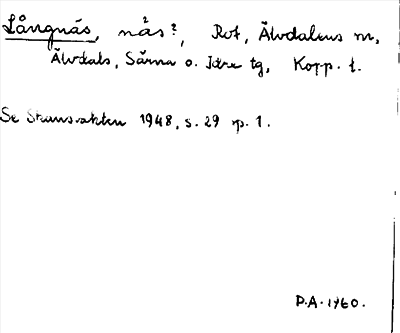 Långnäs, näs?, Rot, Älvdalens m,
Älvdals, Särna o. Idre tg, Kopp. l.
Se Skansvakten 1948, s. 29 sp. 1.
P.A. 1960.